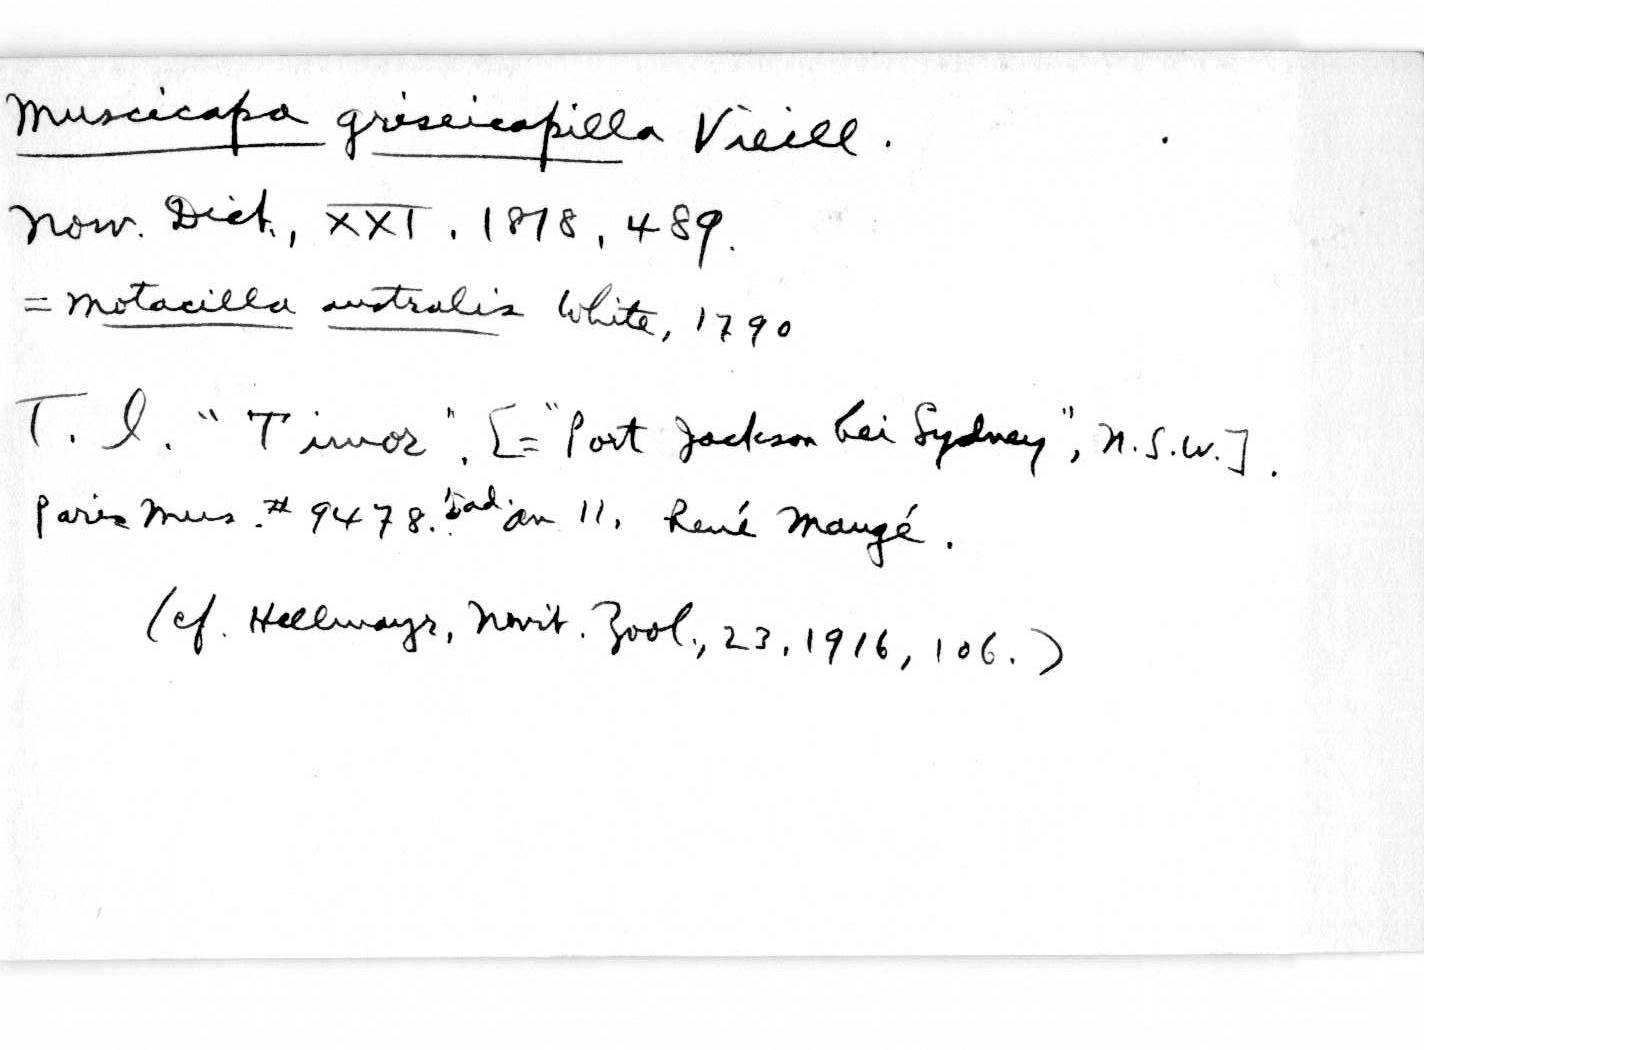 Muscicapa griseicapilla Vieill.
Nouv. Dict., XXI, 1818, 489.
= Motacilla australis White, 1790
T. l. "Timor". [= "Port Jackson bei Sydney", N.S.W.].
Paris Mus. # 9478. Bad. an 11. René Maugé.
(cf. Hellmayr, Novit. Zool., 23, 1916, 106.)